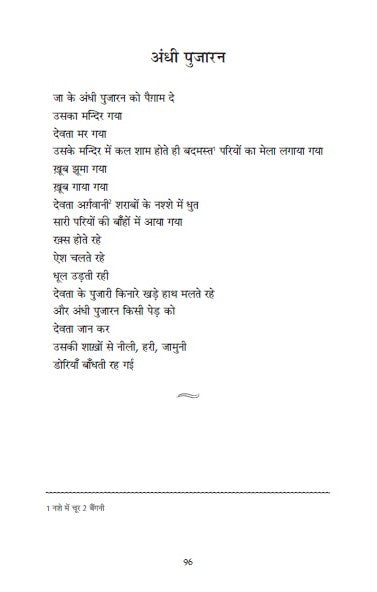 अंधी पुजारन
जा के अंधी पुजारन को पैग़ाम दे
उसका मन्दिर गया
देवता मर गया
उसके मन्दिर में कल शाम होते ही बदमस्त¹ परियों का मेला लगाया गया
ख़ूब झूमा गया
ख़ूब गाया गया
देवता अर्ग़वानी² शराबों के नश्शे में धुत
सारी परियों की बाँहों में आया गया
रक़्स होते रहे
ऐश चलते रहे
धूल उड़ती रही
देवता के पुजारी किनारे खड़े हाथ मलते रहे
और अंधी पुजारन किसी पेड़ को
देवता जान कर
उसकी शाख़ों से नीली, हरी, जामुनी
डोरियाँ बाँधती रह गई
1 नशे में चूर 2 बैंगनी
96